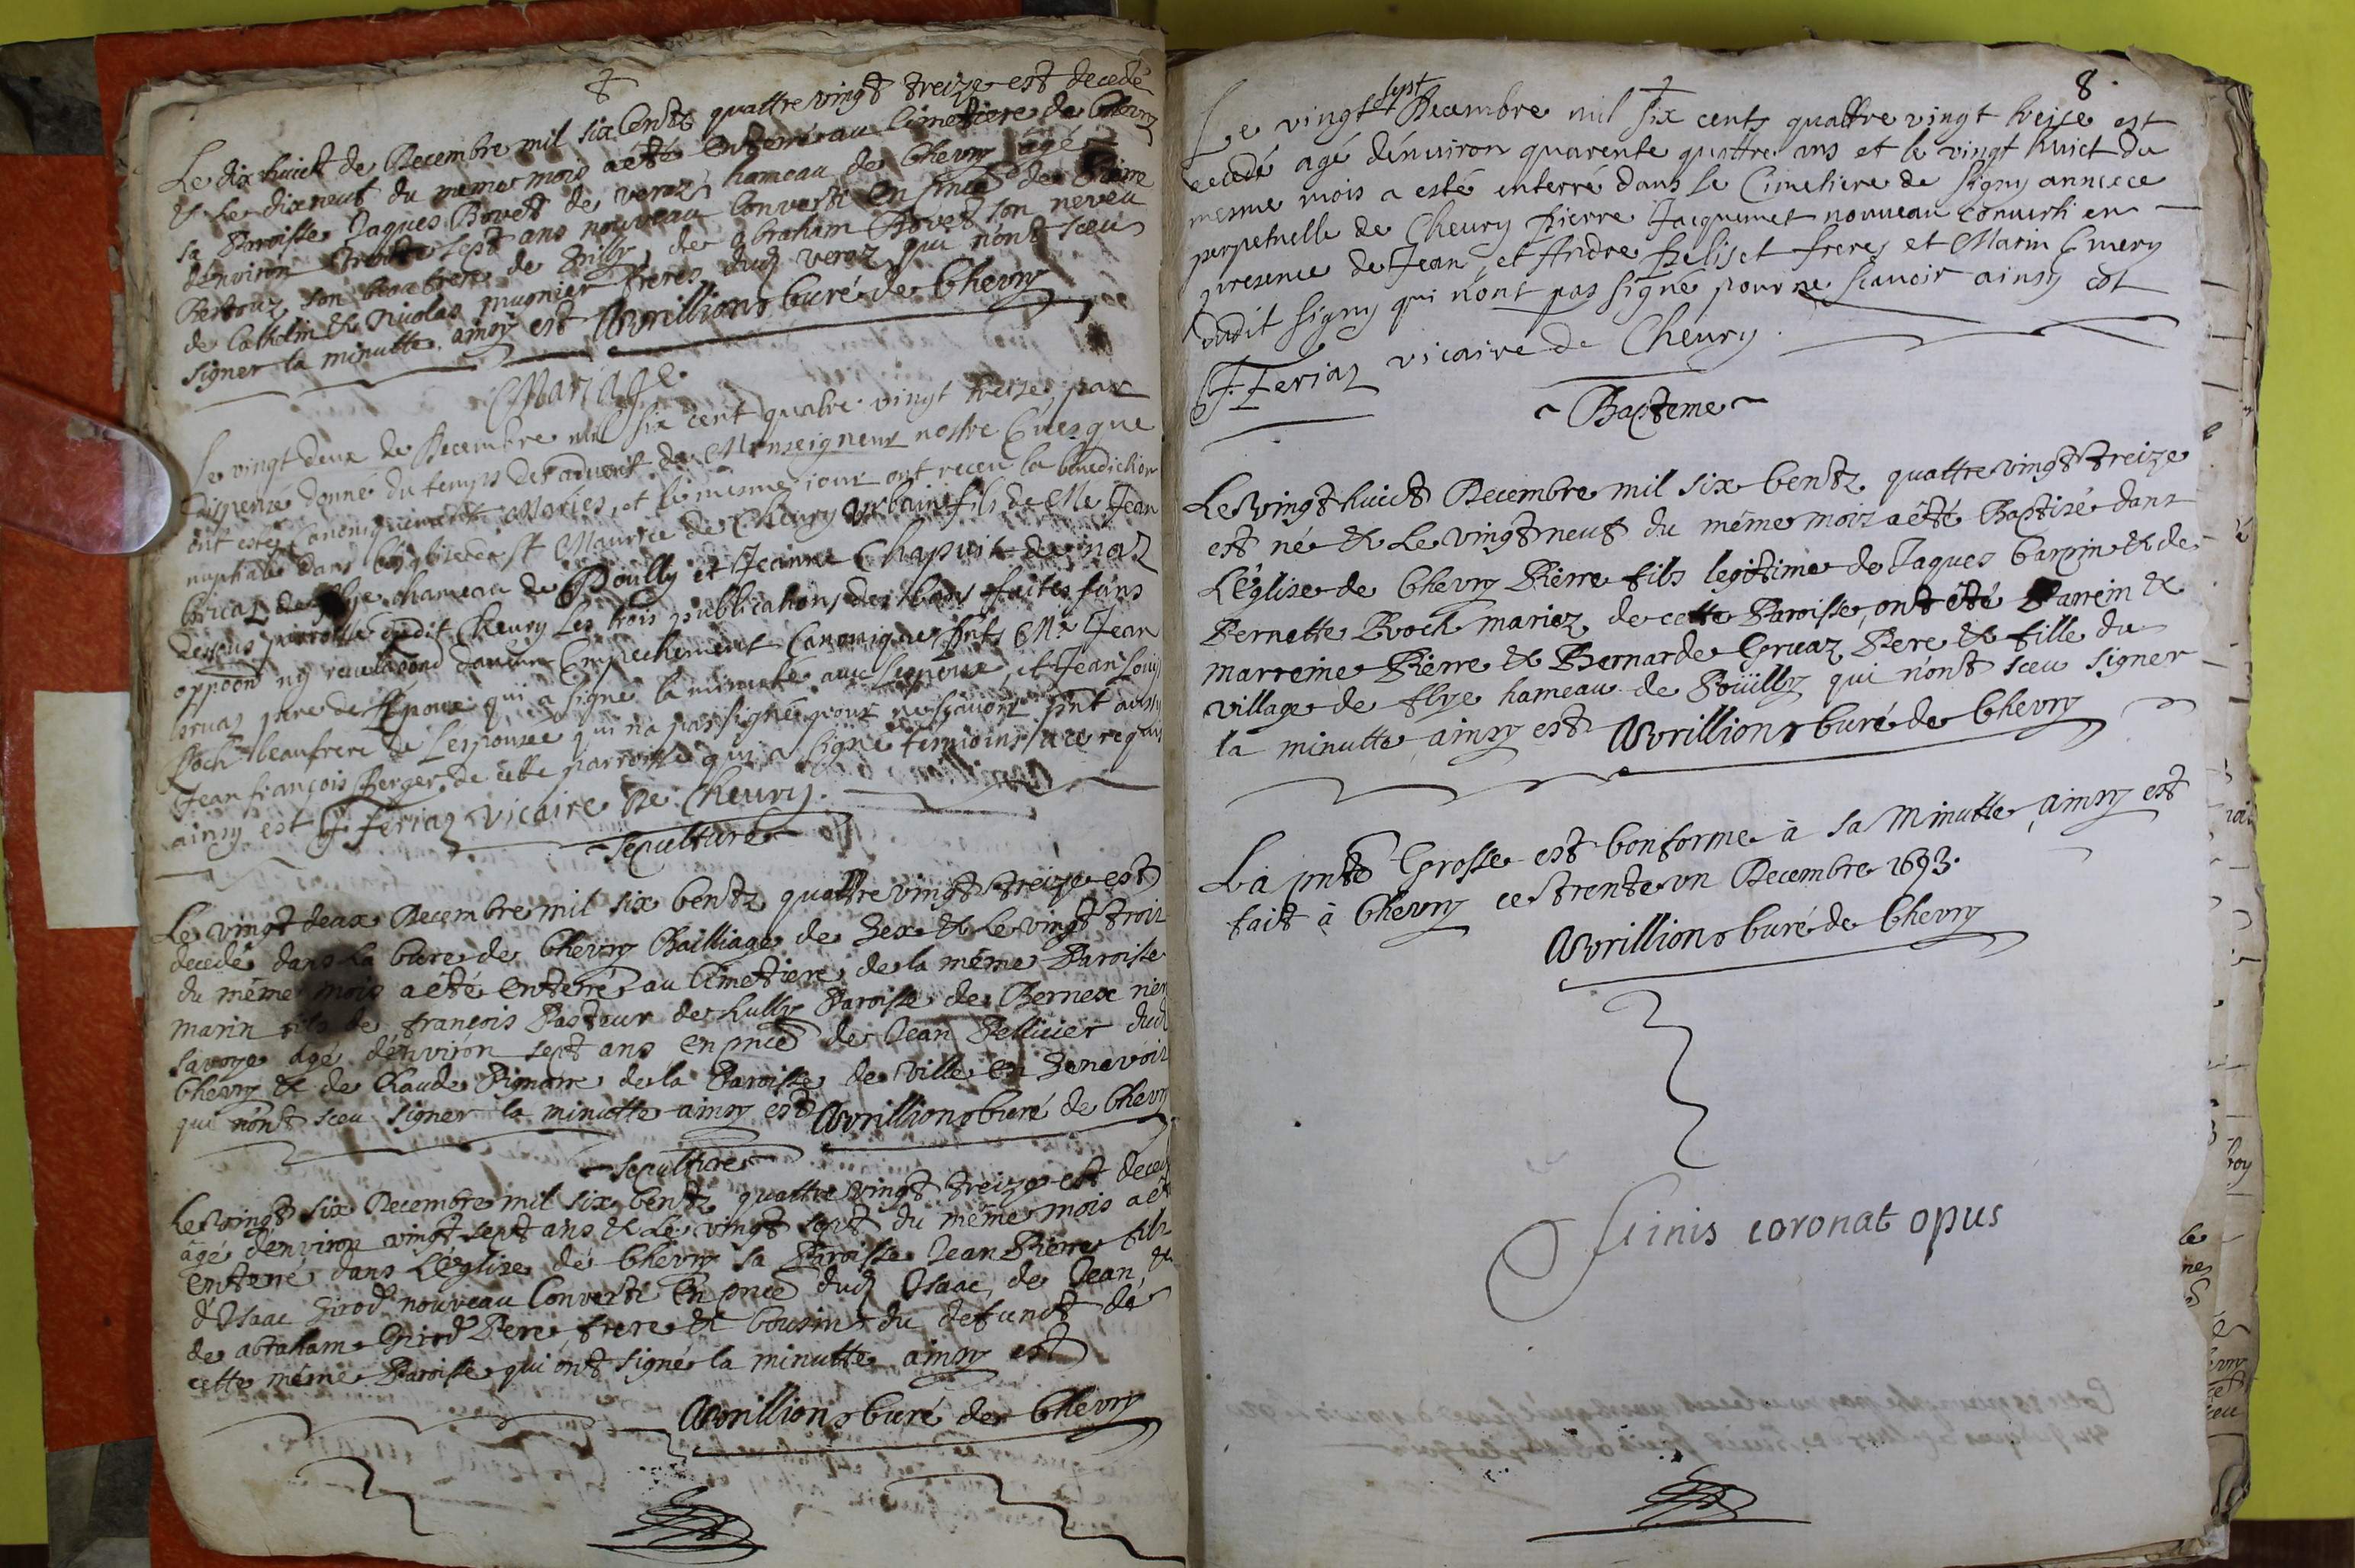 Le dix huict de Decembre mil six Centz quattre vingt treize est decedé
& Le dixneuf du meme mois a été Enterré au Cimettiere de Chevry
sa Paroisse Jaques Bovet de veraz hameau de Chevry âgé
d'environ trente sept ans nouveau Converti En pnce de Pierre
son beaufrere de Pitty, de abraham Bovet son neveu
de Cathelin & Nicolas mugnier freres dud veraz qui n'ont sceu
signer la minutte ainsy est Avrillion Curé de Chevry
Mariage
Le vingt deux de Decembre mil six cent quatre vingt treize, par
dispense donné du temps de l'advent de Monseigneur nostre Evesque
ont esté Canoniquement Mariés, et le mesme jour ont receu la benediction
nuptiale dans l'eglise de St Maurice de Cheury Urbain fils de Me Jean
Gruaz de flye hameau de Poully et Jeanne Chapuit de naz
dessous parroisse dudit Cheury Les trois publications des bans faites sans
oppoon ny revelaond d'aucun Empechement Canonique pnts Mr Jean
Gruaz pere de l'Epoux qui a signé la minutte avec l'epoux, et Jean Louis
Roch beaufrere de L'espousée qui n'a pas signé pour ne sçavoir pnt aussy
Jean françois Berger de cette parroisse qui a signé temoins a ce requis
ainsy est J. feriaz vicaire de Cheury.
Sepulture
Le vingt deux Decembre mil six Centz quattre vingt treize est
decedé dans La Cure de Chevry Bailliage de Gex & Le vingt trois
du même mois a été Enterré au Cimettiere de la même Paroisse
marin fils de françois Pastour de Lully Paroisse de Bernex rier
Savoye âgé d'environ sept ans En pnce de Jean Pellicier dud
Chevry & de Claude Pignarre de la Paroisse de Ville en Genevois
qui n'ont sceu signer la minutte ainsy est Avrillion Curé de Chevry
Sepulture
Le vingt six Decembre mil six Centz quattre vingt treize est decedé
âgé d'environ vingt sept ans & Le vingt sept du même mois a été
Enterré dans L'Eglise de Chevry sa Paroisse Jean Pierre fils
d'Isaac Girod nouveau Converti En pnce dud Isaac, de Jean, &
de abraham Girod Pere frere & Cousin du defunct de
cette même Paroisse qui ont signé la minutte ainsy est
Avrillion Curé de Chevry
8.
Le vingt sept Decembre mil six cents quattre vingt treise est
decedé agé d'enuiron quarente quattre ans et le vingt huict du
mesme mois a esté enterré dans le Cimetiere de Signy annexe
perpetuelle de Cheury Pierre Jacquemet nouueau conuerti en
presence de Jean, et Andre Pelisset freres et Marin Emery
dudit Signy qui n'ont pas signé pour ne sçauoir ainsy est
J. Feriaz vicaire de Cheury.
Bapteme
Le Vingt huict Decembre mil six Centz quattre vingt treize
est né & Le vingt neuf du même mois a été Baptisé dans
L'Eglise de Chevry Pierre fils legitime de Jaques Carpin & de
Pernette Roch mariez de cette Paroisse, ont été Parrein &
marreine Pierre & Bernarde Gruaz Pere & fille du
village de flye hameau de Poüilly qui n'ont sceu signer
la minutte ainsy est Avrillion Curé de Chevry
La pnte Grosse est Conforme à sa Minutte, ainsy est
fait à Chevry ce trente un Decembre 1693.
Avrillion Curé de Chevry
Finis coronat opus